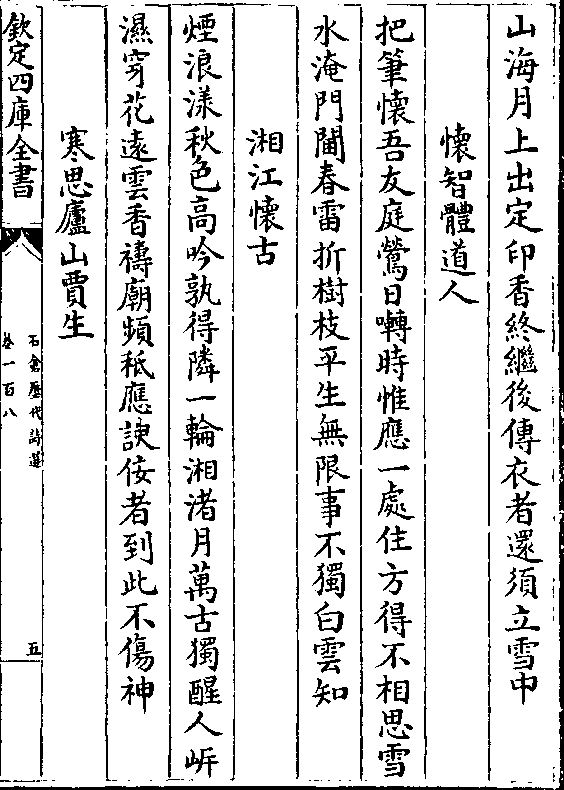 山海月上出定印香終繼後傳衣者還須立雪中
懷智體道人
把筆懷吾友庭鶯日囀時惟應一處住方得不相思雪
水淹門閫春雷折樹枝平生無限事不獨白雲知
湘江懷古
煙浪漾秋色高吟孰得隣一輪湘渚月萬古獨醒人㟁
濕穿花遠雲香禱廟頻秪應諛佞者到此不傷神
寒思廬山賈生
欽定四庫全書
石倉歷代詩選
卷一百八
五